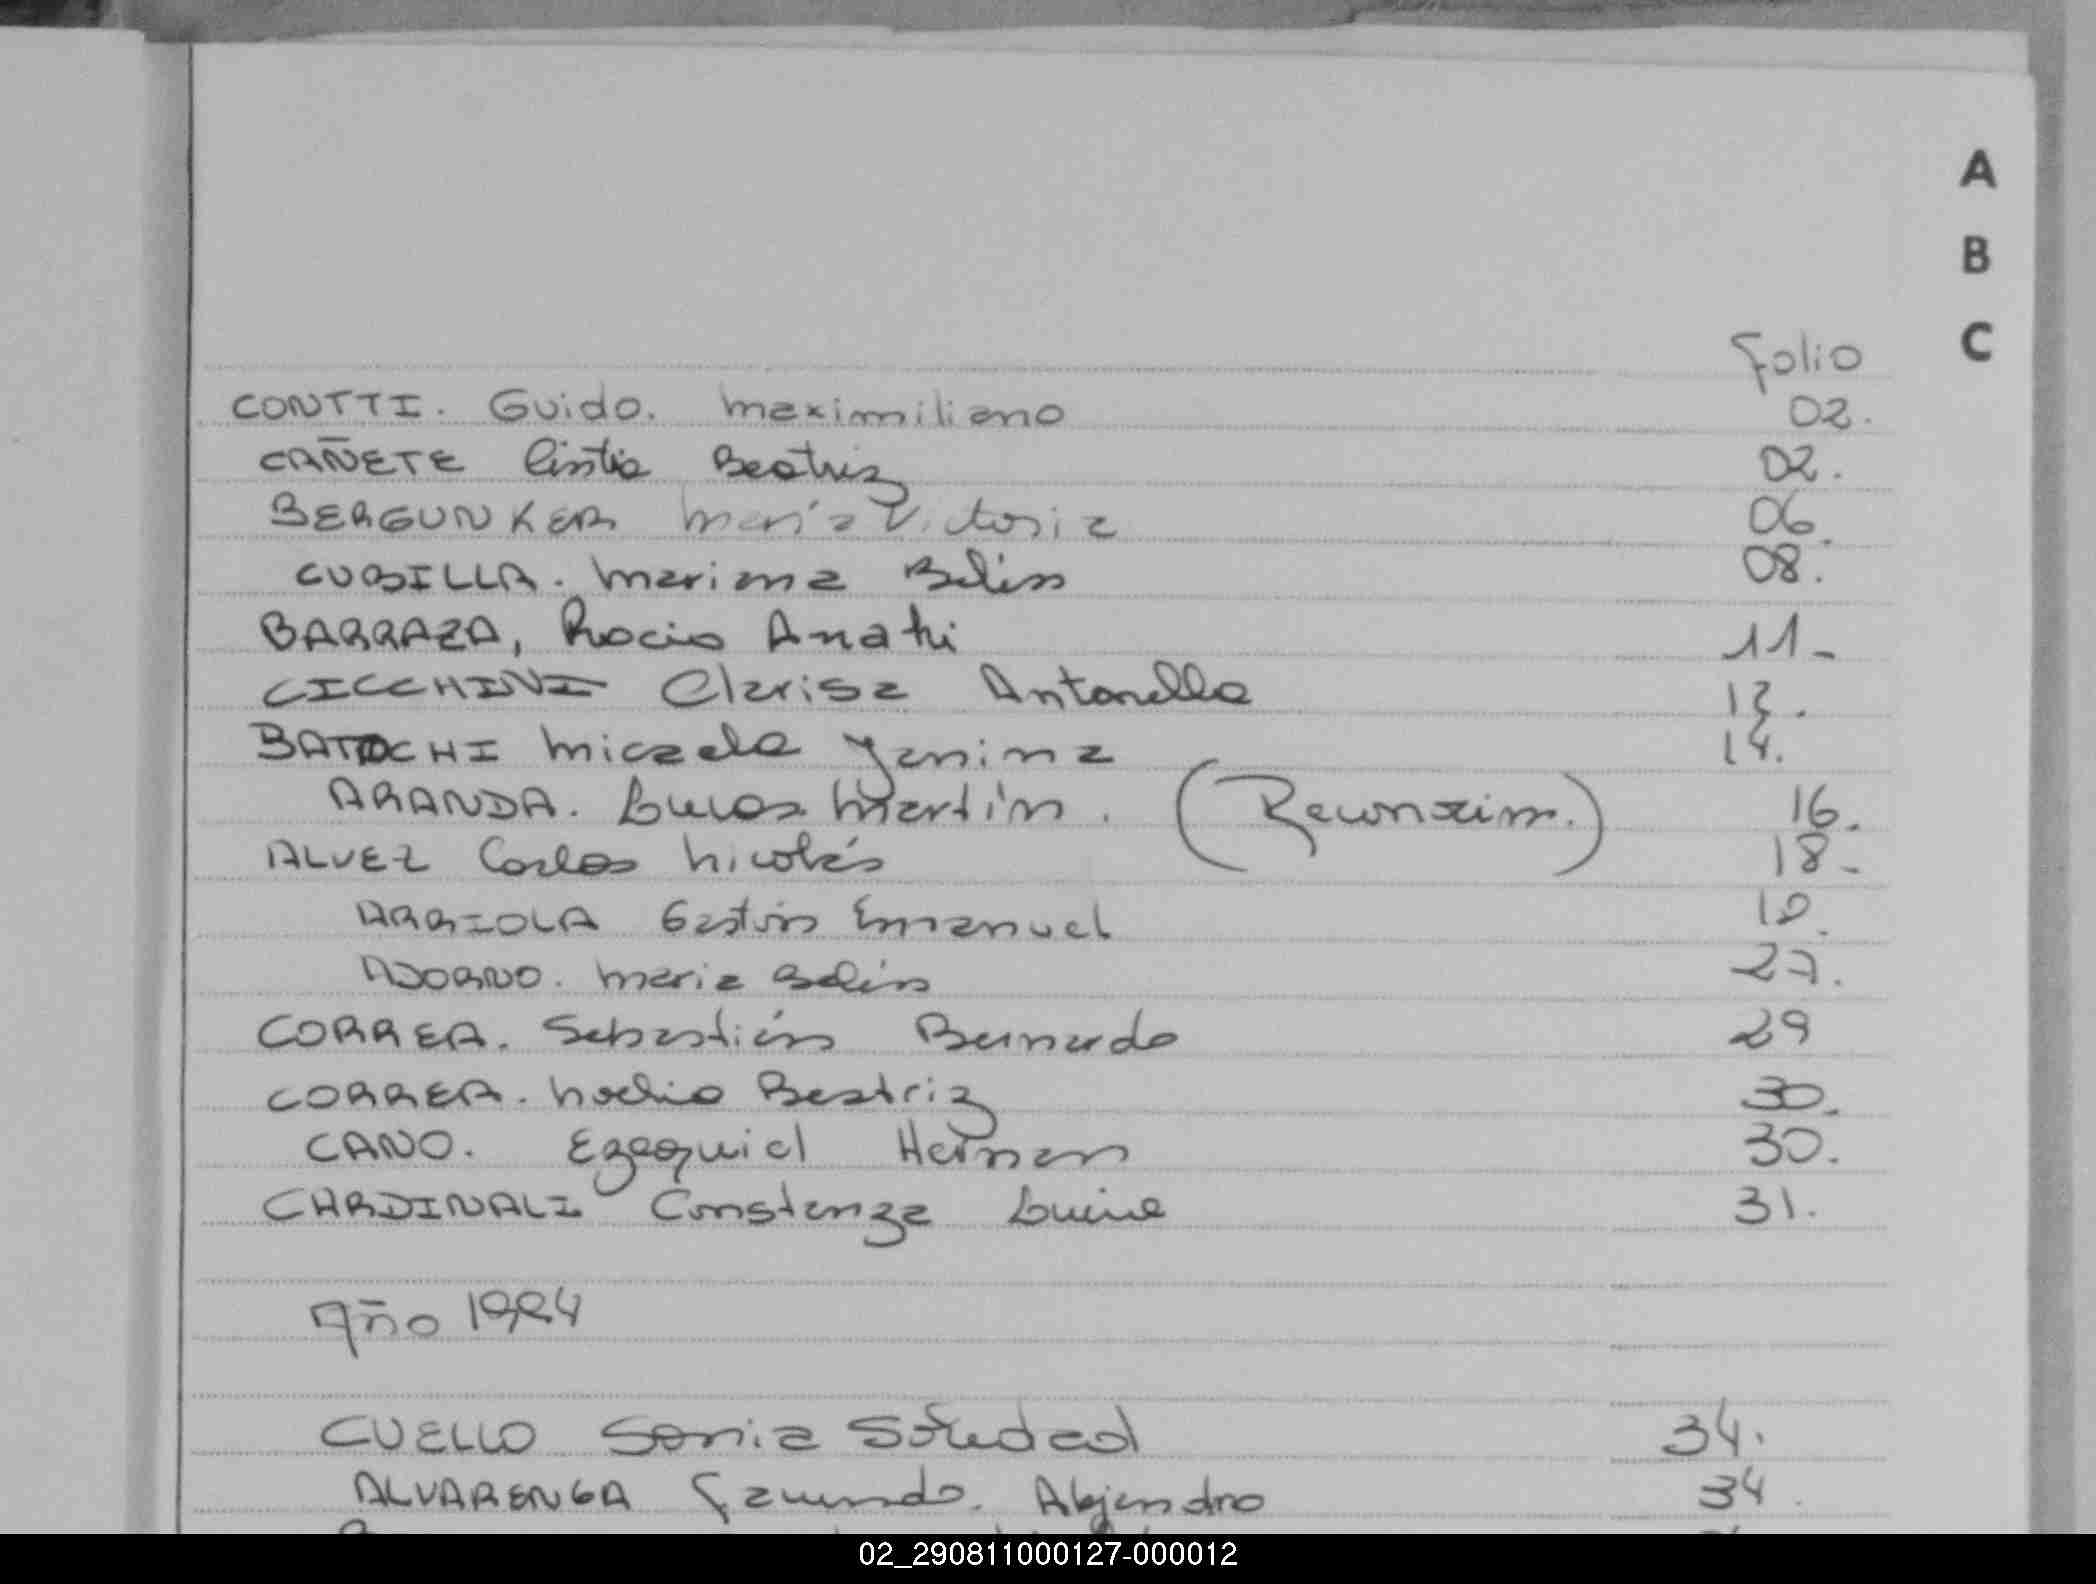 A
B
C
Folio
CONTTI. Guido. Maximiliano 02.
CAÑETE Cintia Beatriz 02.
BERGUNKER María Victoria 06.
CUBILLA. Mariana Belén 08.
BARRAZA, Rocio Anahi 11-
CICCHINI Clarisa Antonella 13.
BATOCHI Micaela Yanina 14.
ARANDA. Lucas Martín. (Reconocim.) 16.
ALVEZ Carlos Nicolás 18-
ARRIOLA Gastón Emanuel 19.
ADORNO. Maria Belén 27.
CORREA. Sebastián Bernardo 29
CORREA. Noelia Beatriz 30.
CANO. Ezequiel Hernan 30.
CARDINALI Constanza Lucia 31.
Año 1994
CUELLO Sonia Soledad 34.
ALVARENGA Facundo. Alejandro 34.
02_290811000127-000012